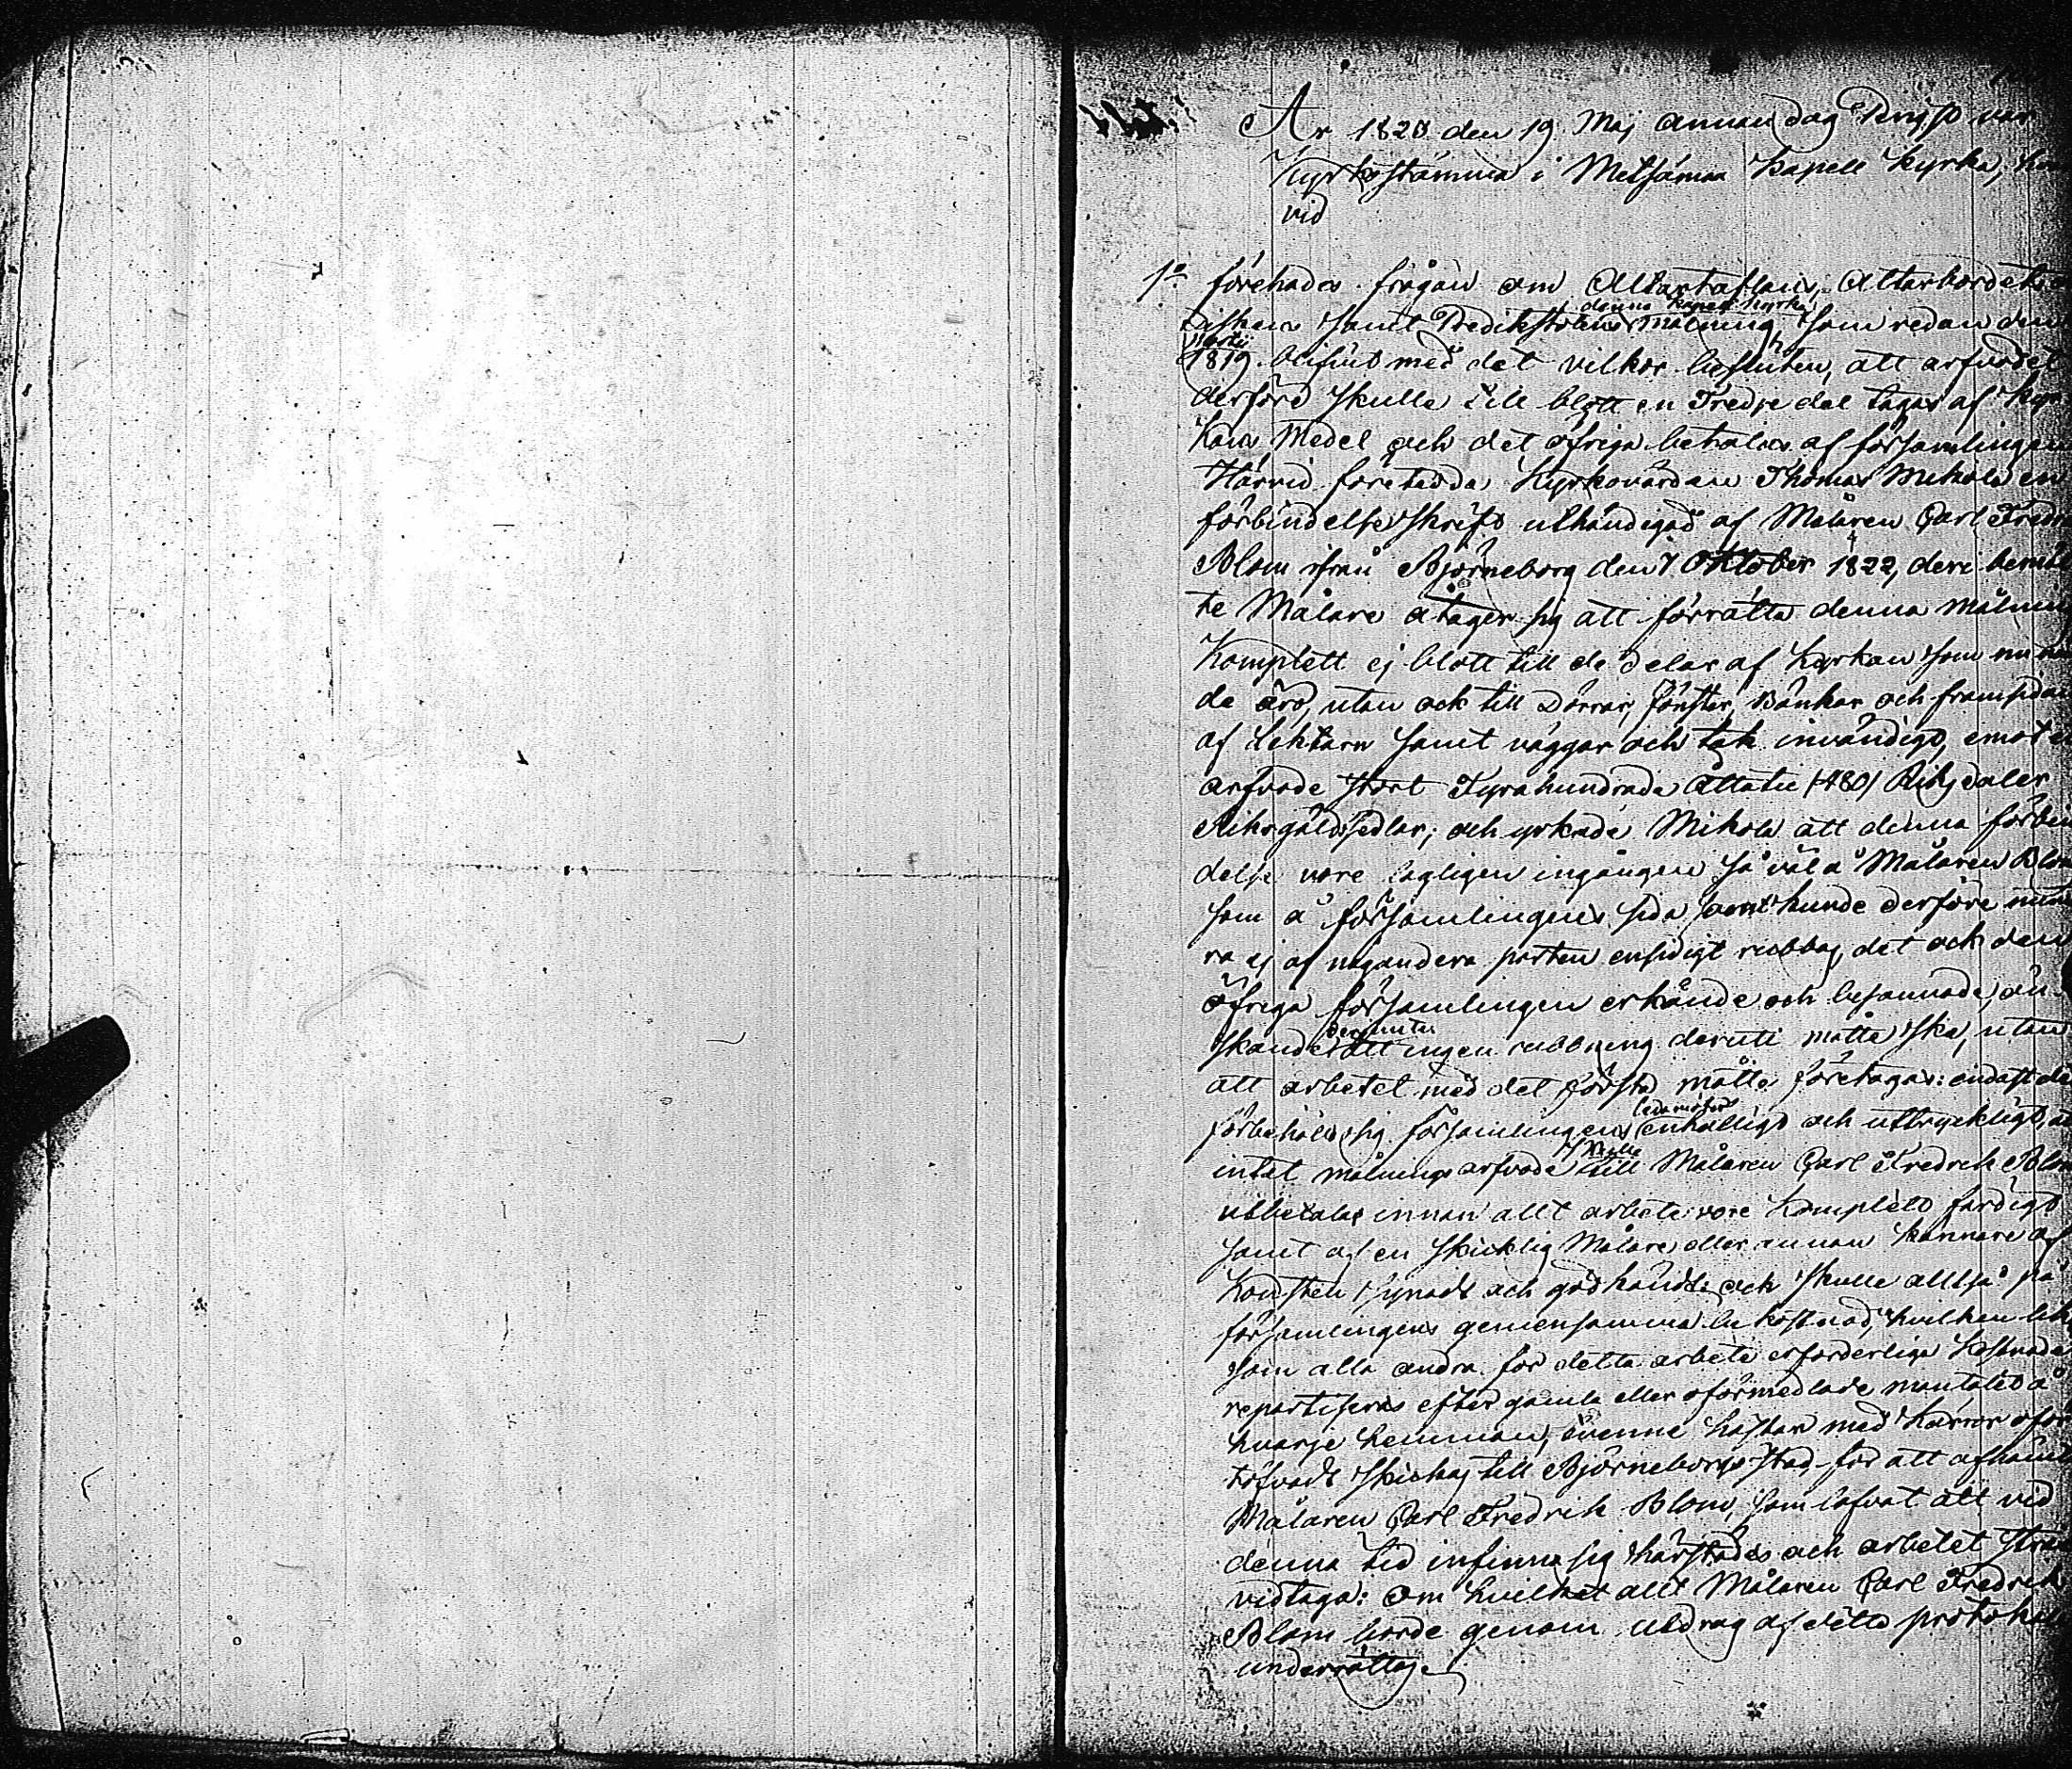 År 1823 den 19 Maj annan dag Pingst var
Kyrkostämma i Metsämaa Kapell Kyrka,
vid
1:o förehades frågan om Altartaflans, Altarbordets
Diskens samt Predikstolens denna Kapell Kyrka målning, som redan den
1819 blifvit med det vilkor besluten, att arfvodet
derföre skulle till blott en Tredje del tagas af Kyr
kans Medel och det öfriga betalas af församlingen
Härvid företedde Kyrkovärden Thomas Mikola en
förbindelse skrift uthändigad af Målaren Carl Fredr
Blom ifrån Björneborg den 7 Oktober 1822, deri bemäl
te Målare åtager sig att förrätta denna målning
Komplett ej blott till de delar af Kyrkan som nu
de äro, utan ock till Dörrar, fönster, Bänkar och framsidan
af Lektarn samt väggar och tak invändigt, emot
arfvode stort Fyrahundrade Åttatio /480/ Riksdaler
Riksgäldssedlar; och yrkade Mikola att denna förbin
delse vore lagligen ingången så väl å Målaren Blom
som å församlingens sida, samt kunde derföre nume
ra ej af någondera parten ensidigt rubbas, det ock den
öfriga församlingen erkände och besannade, ön
skande derjemte att ingen rubbning deruti måtte ske, utan
att arbetet med det första måtte företagas: endast det
förbehöllo sig församlingens ledamöter enhälligt och uttryckligt,
intet målnings arfvode skulle till Målaren Carl Fredrik Blom
utbetalas innan allt arbete vore Komplett färdigt
samt af en skicklig Målare eller annan kännare af
Konsten synadt och godkändt: och skulle alltså på
församlingens gemensamma bekostnad, hvilken lik
som alla andra för detta arbete erforderliga kostnader
repartiseras efter gamla eller oförmedlade mantalet å
hvarje hemman, tvenne hästar med kärror oför
töfvadt skickas till Björneborgs stad, för att afhämta
Målaren Carl Fredrik Blom, som lofvat att vid
denna tid infinna sig härstädes och arbetet strax
vidtaga: Om hvilket allt Målaren Carl Fredrik
Blom borde genom utdrag af detta protokoll
underrättas.